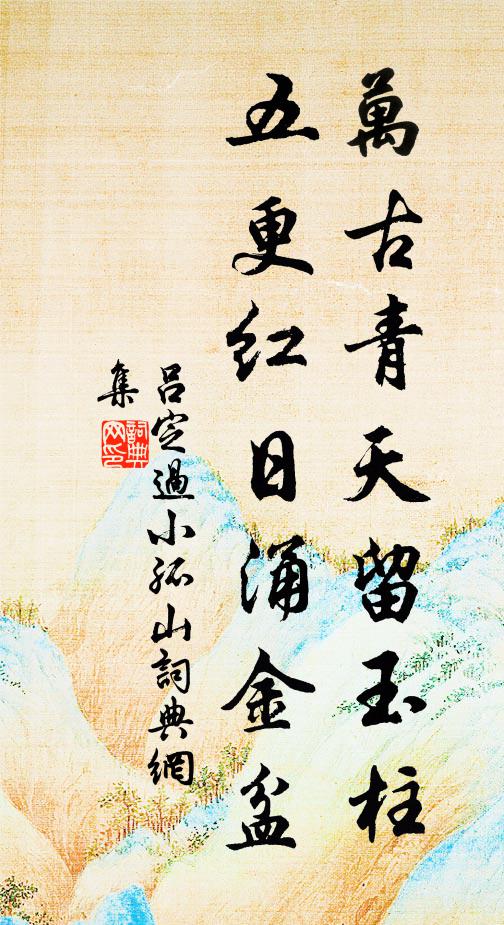 萬古青天留玉柱
五更红日涌金盆
吕定過小孤山詞典網
集
詞典网印